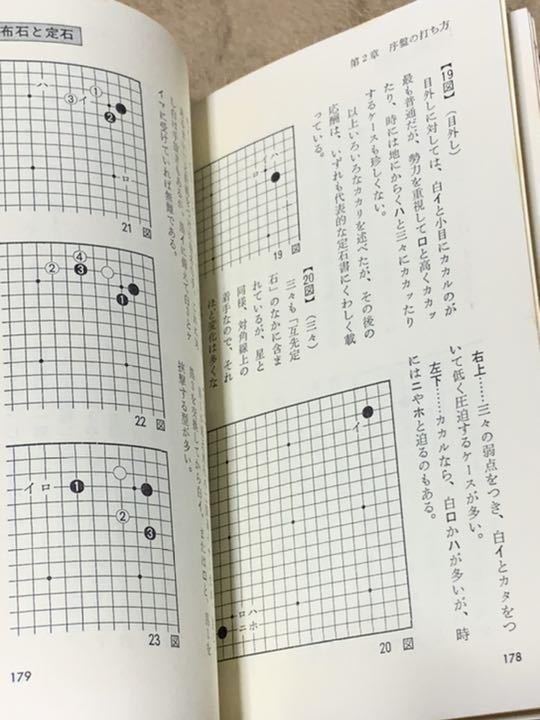 第2章 序盤の打ち方
【19図】(目外し)
目外しに対しては、白イと小目にカカルのが
最も普通だが、勢力を重視してロと高くカカッ
たり、時には地にからくハと三々にカカッたり
するケースも珍しくない。
以上いろいろなカカリを述べたが、その後の
応酬は、いずれも代表的な定石書にくわしく載
っている。
ハ
イ
ロ
19 図
【20図】(三々)
三々も「互先定
石」のなかに含ま
れているが、星と
同様、対角線上の
着手なので、それ
ほど変化は多くな
右上……三々の弱点をつき、白イとカタをつ
いて低く圧迫するケースが多い。
左下……カカルなら、白ロかハが多いが、時
にはニやホと迫るのもある。
イ
ロ ハ
ニ ホ
20 図
178
布石と定石
ハ
1
3 イ
2
ロ
21 図
イマに受けていれば無難である。
4
2 3
1
22 図
挟撃する形が多い。
イ ロ 1
2
3
23 図
179